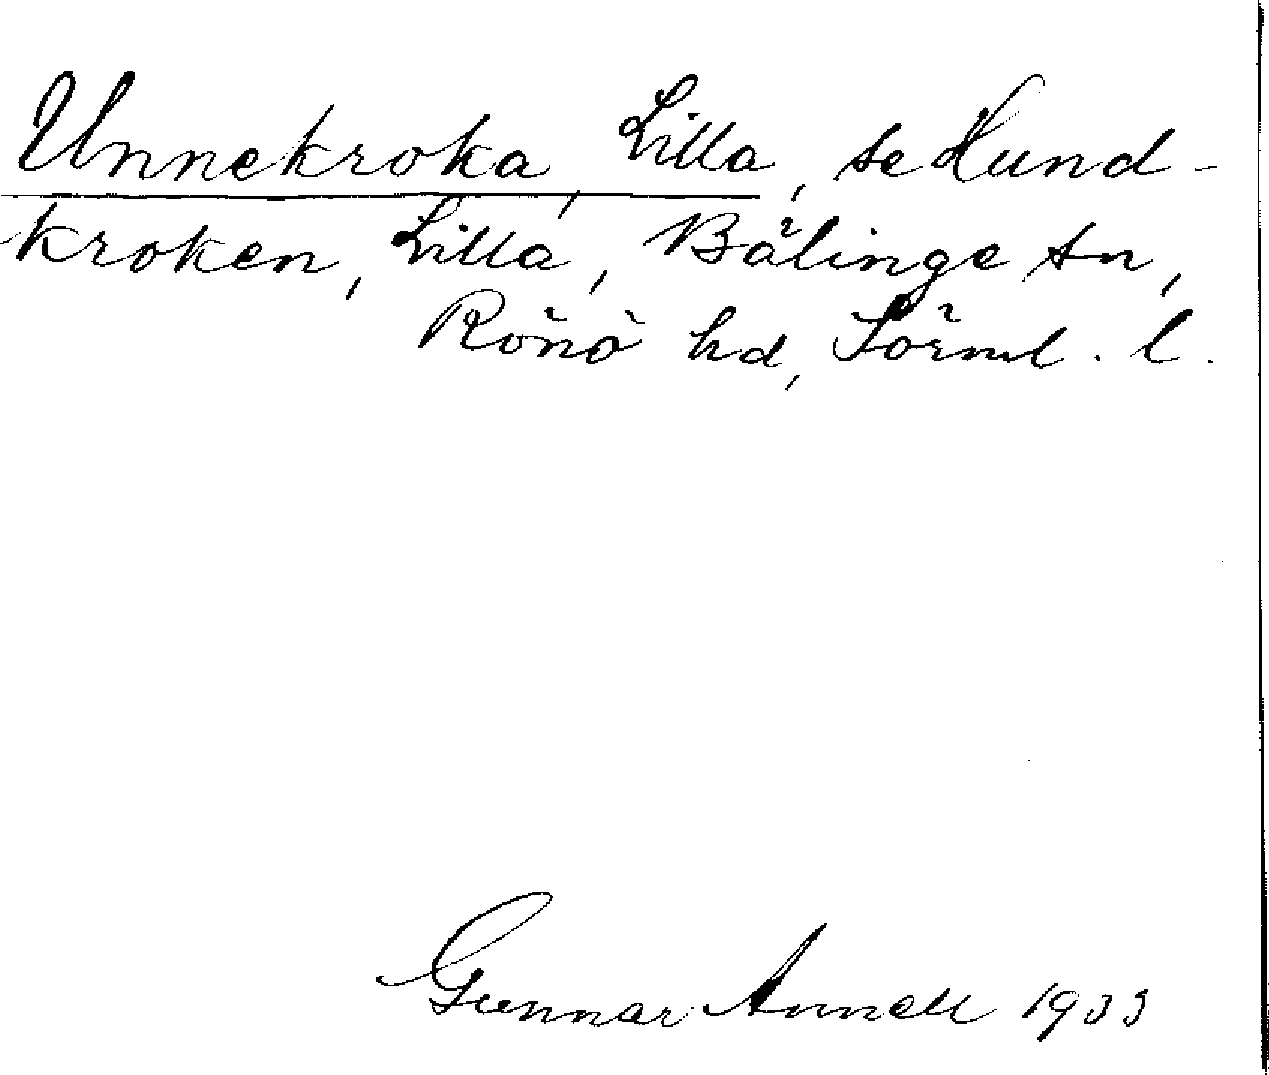 Unnekroka, Lilla, se Hund-
kroken, Lilla, Bälinge sn,
Rönö hd, Sörml. l.
Gunnar Annell 1933